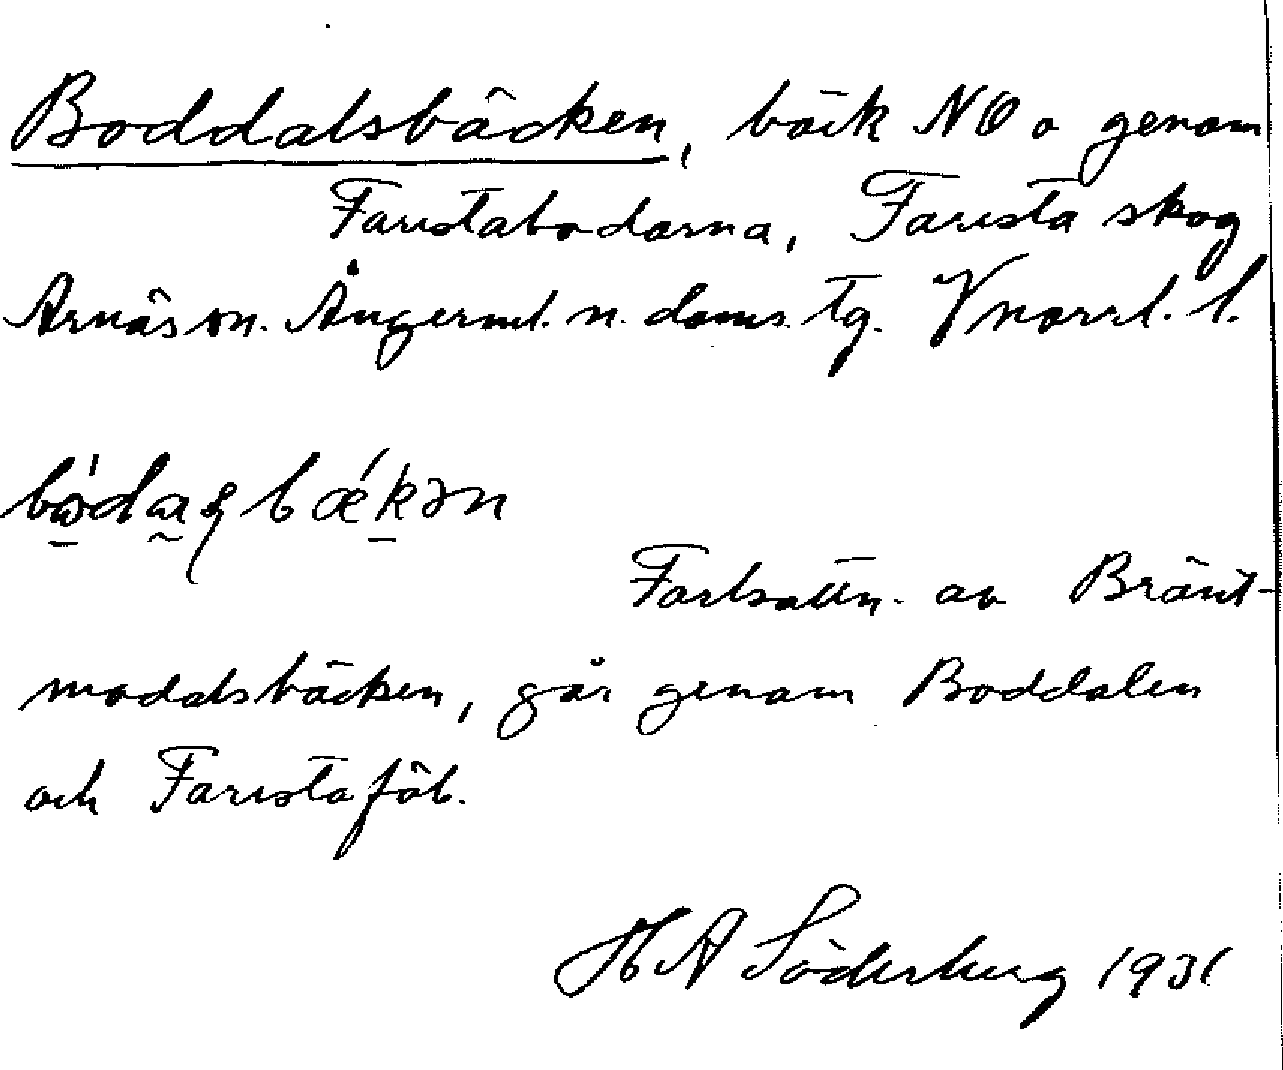 Boddalsbäcken, bäck NO o genom
Faristabodarna, Farista skog
Arnäs sn. Ångerml. n. doms. tg. Vnorrl. l.
bækən
Fortsättn. av Bränt-
modalsbäcken, går genom Boddalen
och Farista fäb.
H A Söderberg 1931